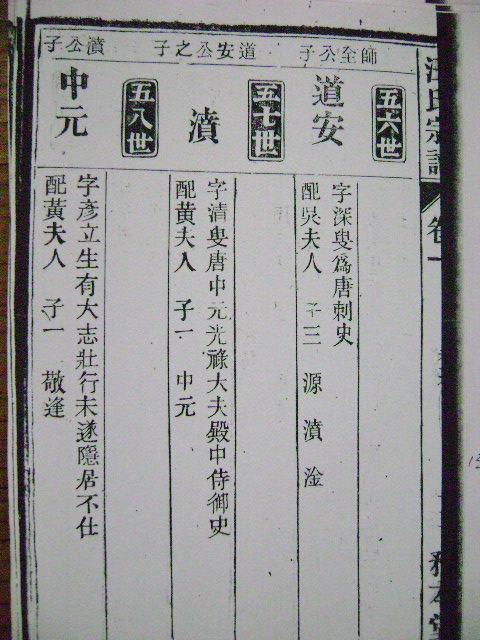 汪氏宗譜
卷一
師全公子
五六世
道安
字深叟爲唐刺史
配吳夫人 子三 源 濆 淦
道安公之子
五七世
濆
字清叟唐中元光祿大夫殿中侍御史
配黄夫人 子一 中元
濆公子
五八世
中元
字彥立生有大志壯行未遂隱居不仕
配黃夫人 子一 敬逢